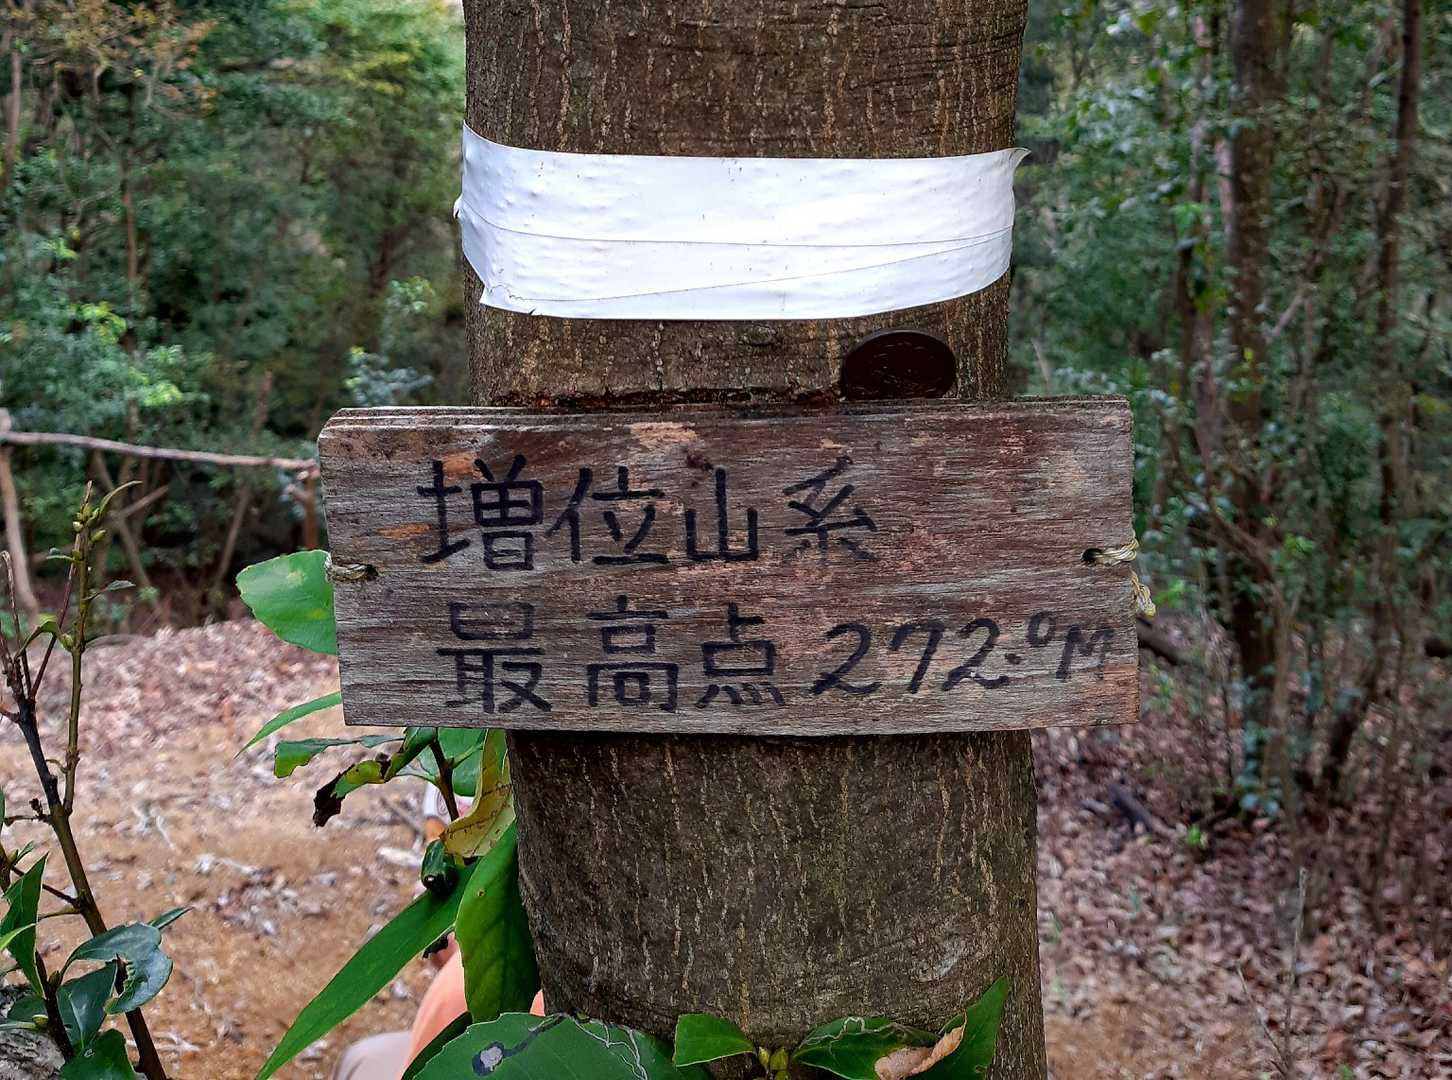 増位山系
最高点272.0M